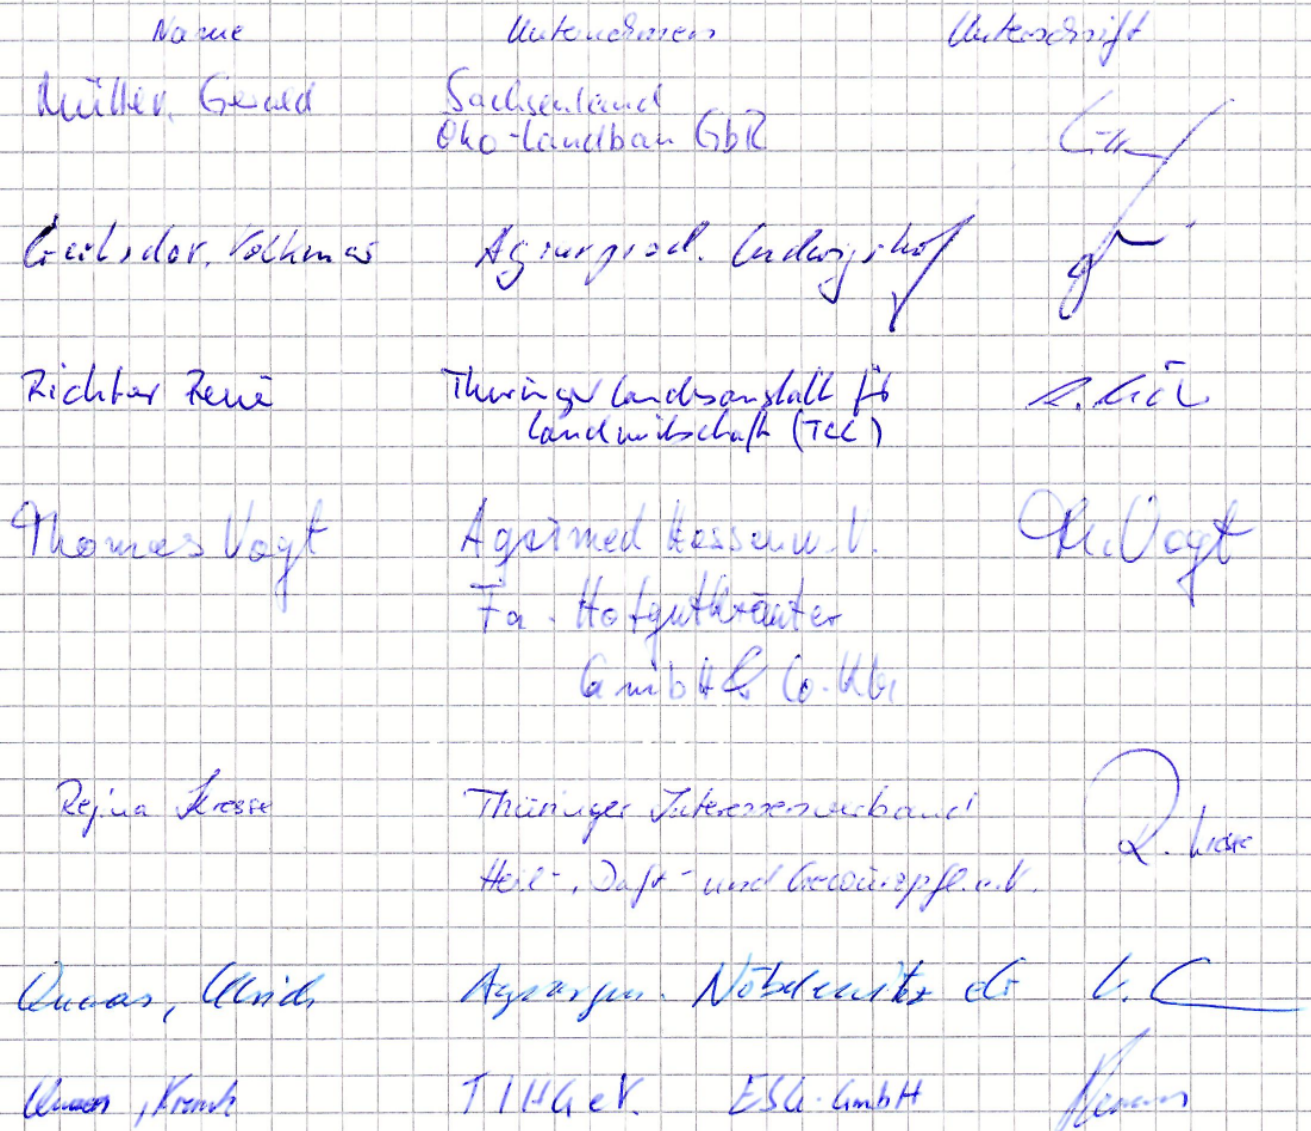 Name Unternehmen Unterschrift
Müller, Gerald Sachsenland
Öko-Landbau GbR
Volkmar Agrarprod. Ludwigshof
Richter René Thüringer Landesanstalt für
Landwirtschaft (TLL)
Thomas Vogt Agrimed Hessen w.V. Th. Vogt
Fa. Hofgutkräuter
GmbH & Co. KG
Regina Kresse Thüringer Interessenverband R. Kresse
Heil-, Duft- und Gewürzpfl. e.V.
Ulrich Agrargen. Nöbdenitz eG
TIHG e.V. ESG-GmbH